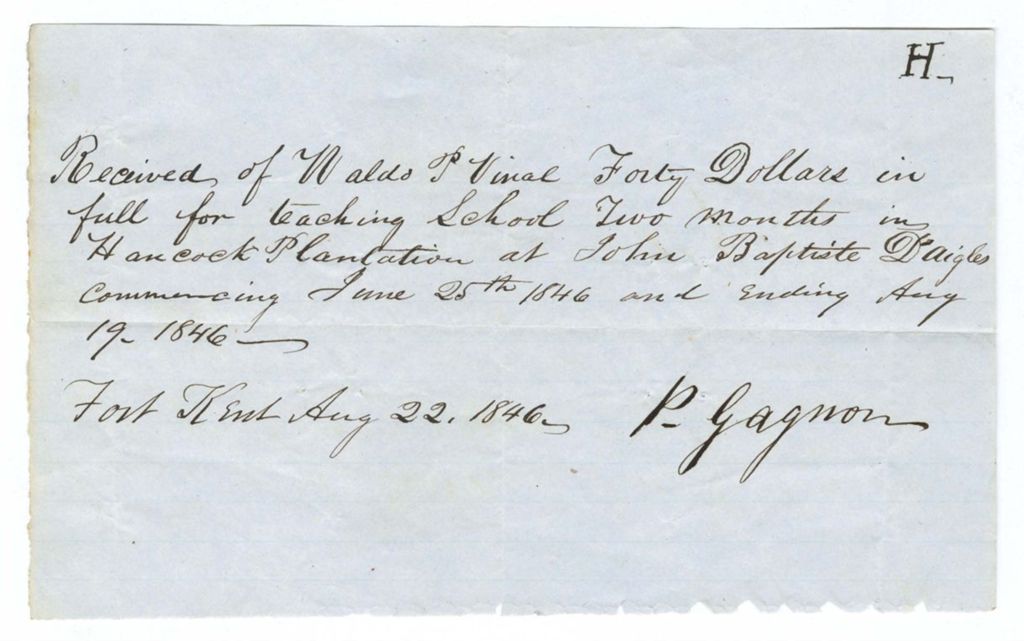 H_
Received of Waldo P Vinal Forty Dollars in
full for teaching School Two months in
Hancock Plantation at John Baptiste D'aigles
Commencing June 25th 1846 and Ending Aug
19_ 1846 —
Fort Kent Aug 22. 1846_ P_ Gagnon